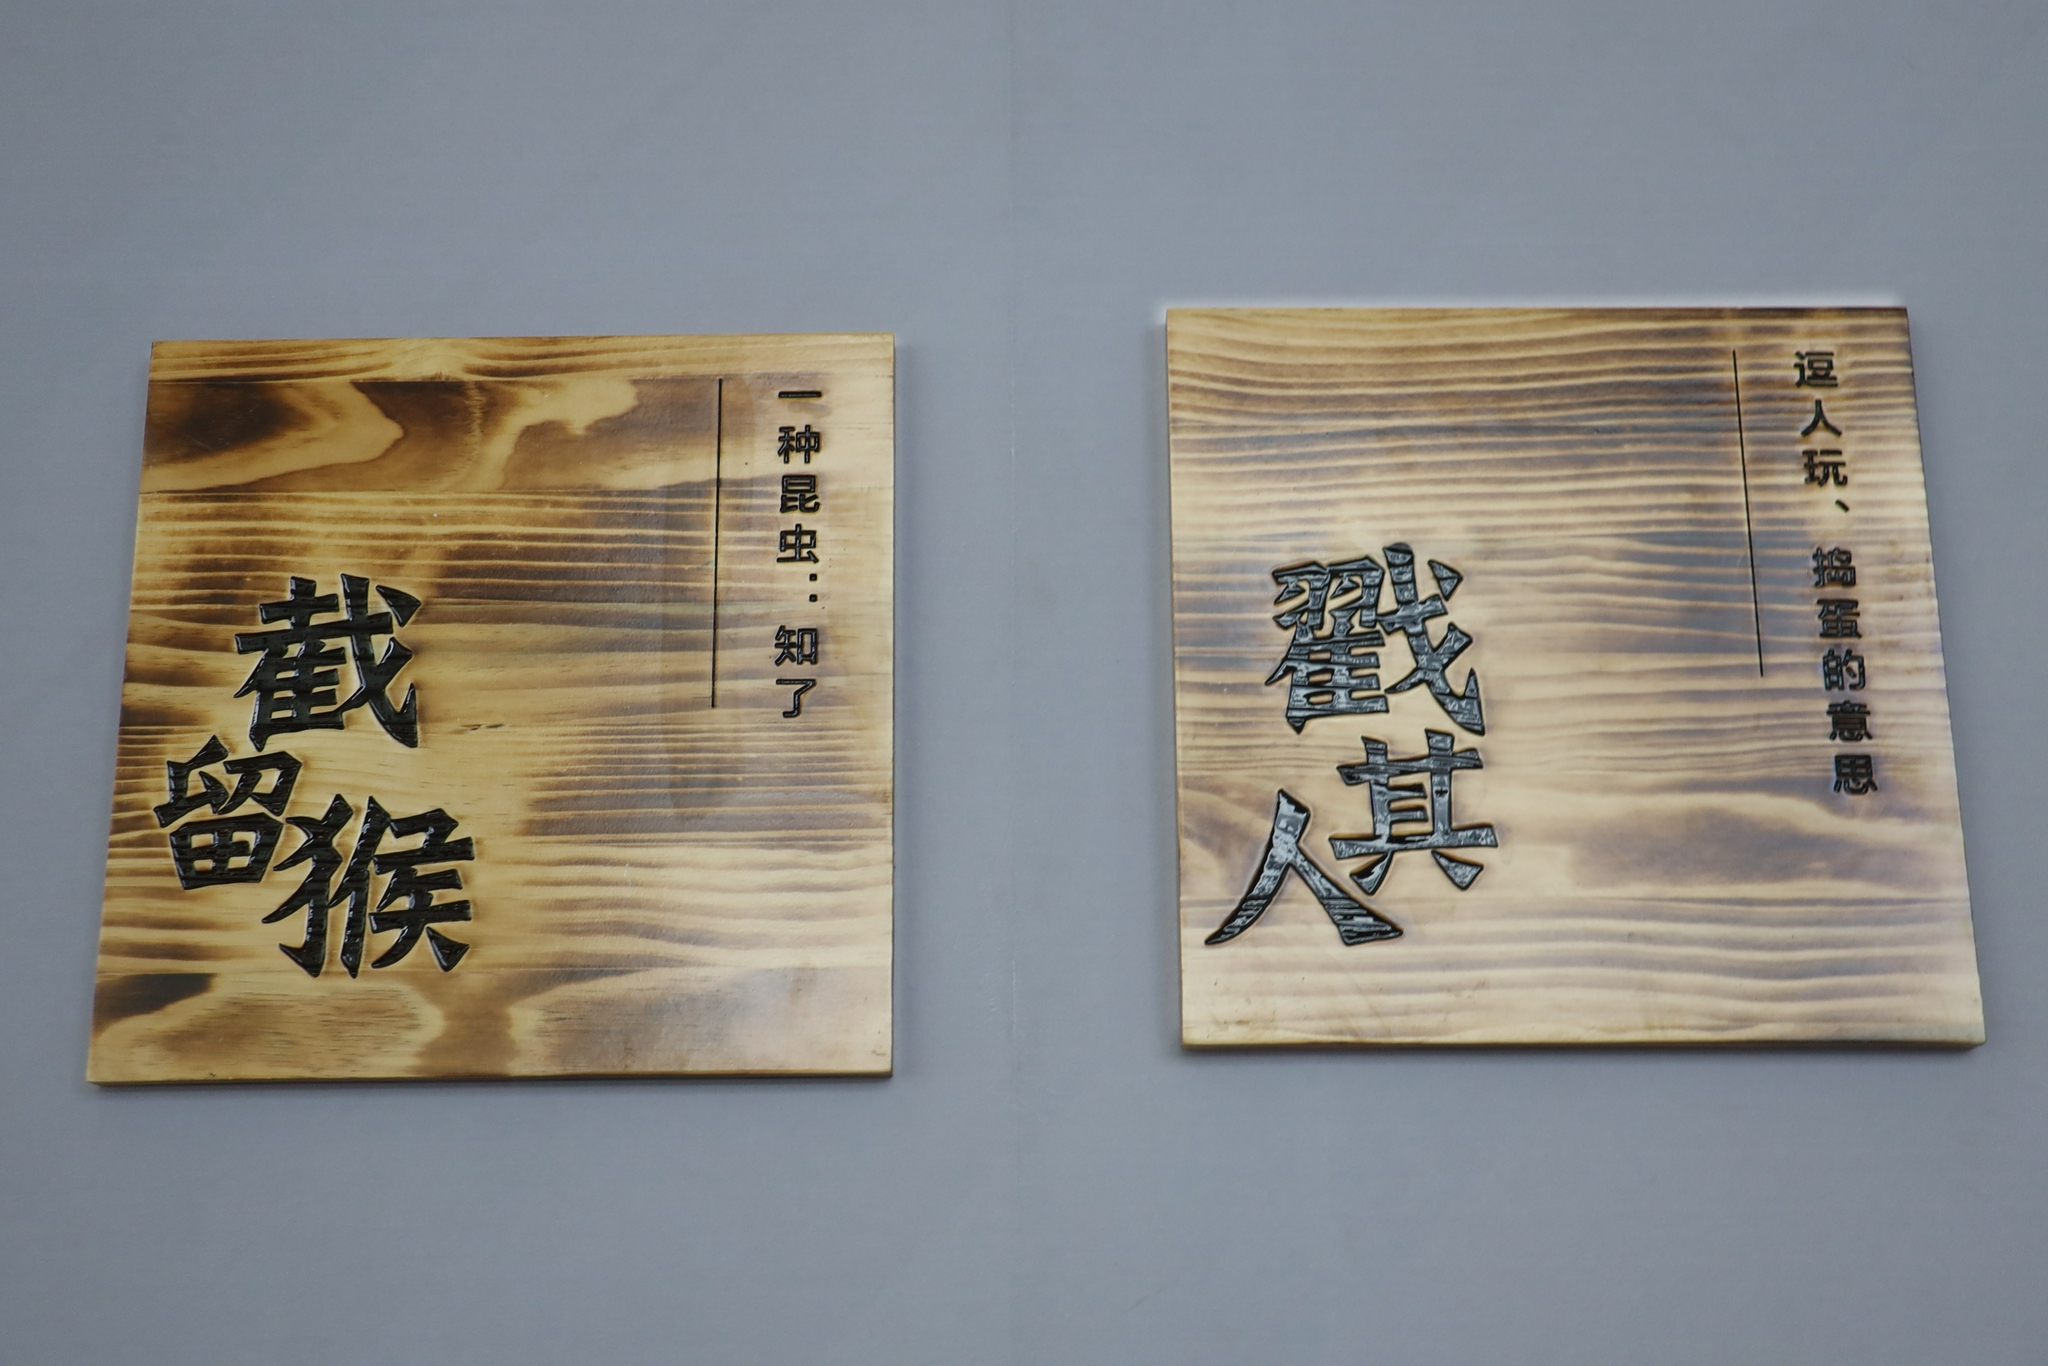 一种昆虫：知了
截留猴
逗人玩、捣蛋的意思
戳其人